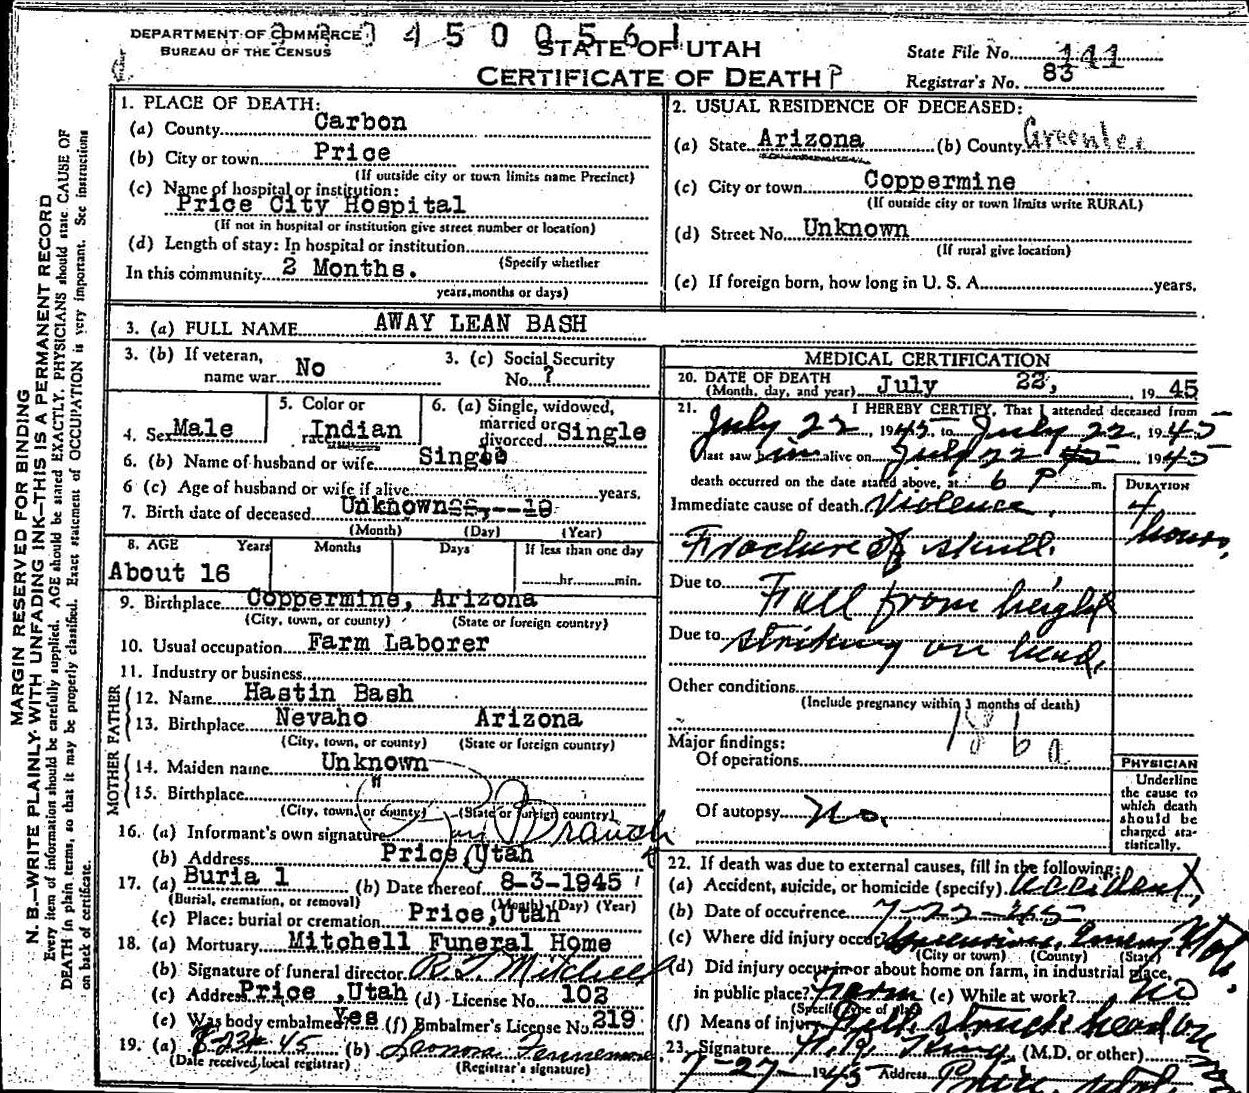 DEPARTMENT OF COMMERCE
BUREAU OF THE CENSUS
STATE OF UTAH
CERTIFICATE OF DEATH
State File No. 141
Registrar's No. 83
MARGIN RESERVED FOR BINDING
N. B.—WRITE PLAINLY WITH UNFADING INK—THIS IS A PERMANENT RECORD
Every item of information should be carefully supplied. AGE should be stated EXACTLY. PHYSICIANS should state CAUSE OF
DEATH in plain terms, so that it may be properly classified. Exact statement of OCCUPATION is very important. See instructions
on back of certificate.
1. PLACE OF DEATH:
(a) County Carbon
(b) City or town Price
(If outside city or town limits name Precinct)
(c) Name of hospital or institution:
Price City Hospital
(If not in hospital or institution give street number or location)
(d) Length of stay: In hospital or institution
(Specify whether
In this community 2 Months.
years, months or days)
2. USUAL RESIDENCE OF DECEASED:
(a) State Arizona (b) County Greenlee
(c) City or town Coppermine
(If outside city or town limits write RURAL)
(d) Street No. Unknown
(If rural give location)
(e) If foreign born, how long in U. S. A. years.
3. (a) FULL NAME AWAY LEAN BASH
3. (b) If veteran, name war No
3. (c) Social Security No. ?
4. Sex Male
5. Color or race Indian
6. (a) Single, widowed, married or divorced Single
6. (b) Name of husband or wife Single
6 (c) Age of husband or wife if alive years.
7. Birth date of deceased Unknown
(Month) (Day) (Year)
8. AGE Years Months Days If less than one day
About 16 hr. min.
9. Birthplace Coppermine, Arizona
(City, town, or county) (State or foreign country)
10. Usual occupation Farm Laborer
11. Industry or business
FATHER
12. Name Hastin Bash
13. Birthplace Nevaho Arizona
(City, town, or county) (State or foreign country)
MOTHER
14. Maiden name Unknown
15. Birthplace "
(City, town, or county) (State or foreign country)
16. (a) Informant's own signature Branch
(b) Address Price, Utah
17. (a) Buria l (b) Date thereof 8-3-1945
(Burial, cremation, or removal) (Month) (Day) (Year)
(c) Place: burial or cremation Price, Utah
18. (a) Mortuary Mitchell Funeral Home
(b) Signature of funeral director R. J. Mitchell
(c) Address Price ,Utah (d) License No. 102
(e) Was body embalmed? Yes (f) Embalmer's License No. 219
19. (a) 45 (b) Leonora Fennemore
(Date received local registrar) (Registrar's signature)
MEDICAL CERTIFICATION
20. DATE OF DEATH
(Month, day, and year) July 22, 1945
21. I HEREBY CERTIFY, That I attended deceased from
July 22, 1945, to July 22, 1945
last saw him alive on July 22 1945
death occurred on the date stated above, at 6 P m.
DURATION
Immediate cause of death Violence. 4
hours,
Fracture of skull.
Due to Fall from height
Due to striking on head.
Other conditions
(Include pregnancy within 3 months of death)
186a
Major findings:
Of operations
Of autopsy No.
PHYSICIAN
Underline
the cause to
which death
should be
charged sta-
tistically.
22. If death was due to external causes, fill in the following:
(a) Accident, suicide, or homicide (specify) Accident
(b) Date of occurrence 7-22-45
(c) Where did injury occur? Emery Utah.
(City or town) (County) (State)
(d) Did injury occur in or about home on farm, in industrial place,
in public place? Farm (e) While at work? NO
(Specify type of place)
(f) Means of injury Fell, struck head on
23. Signature (M.D. or other)
7-27-1945 Address Price, Utah.